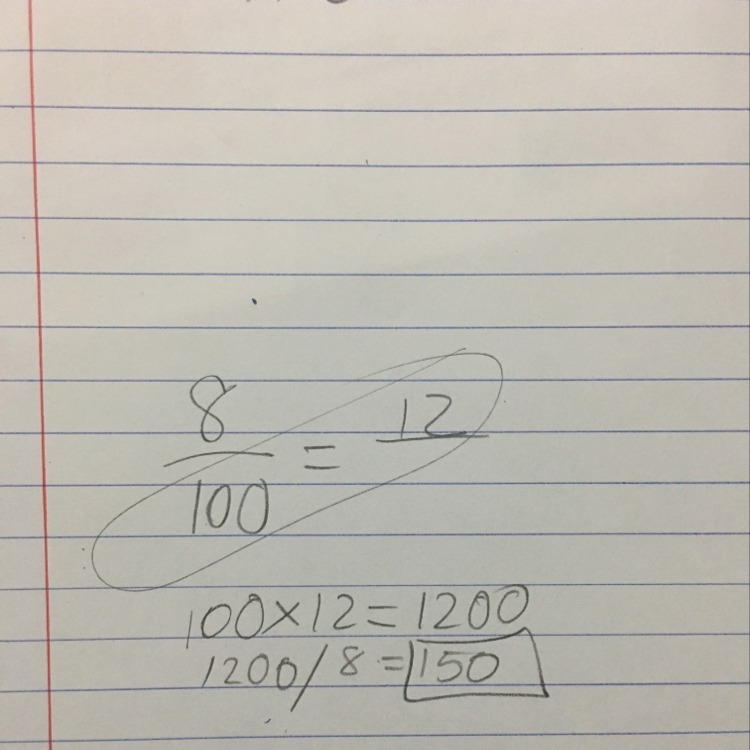 8/100 = 12/
100×12=1200
1200/8=150